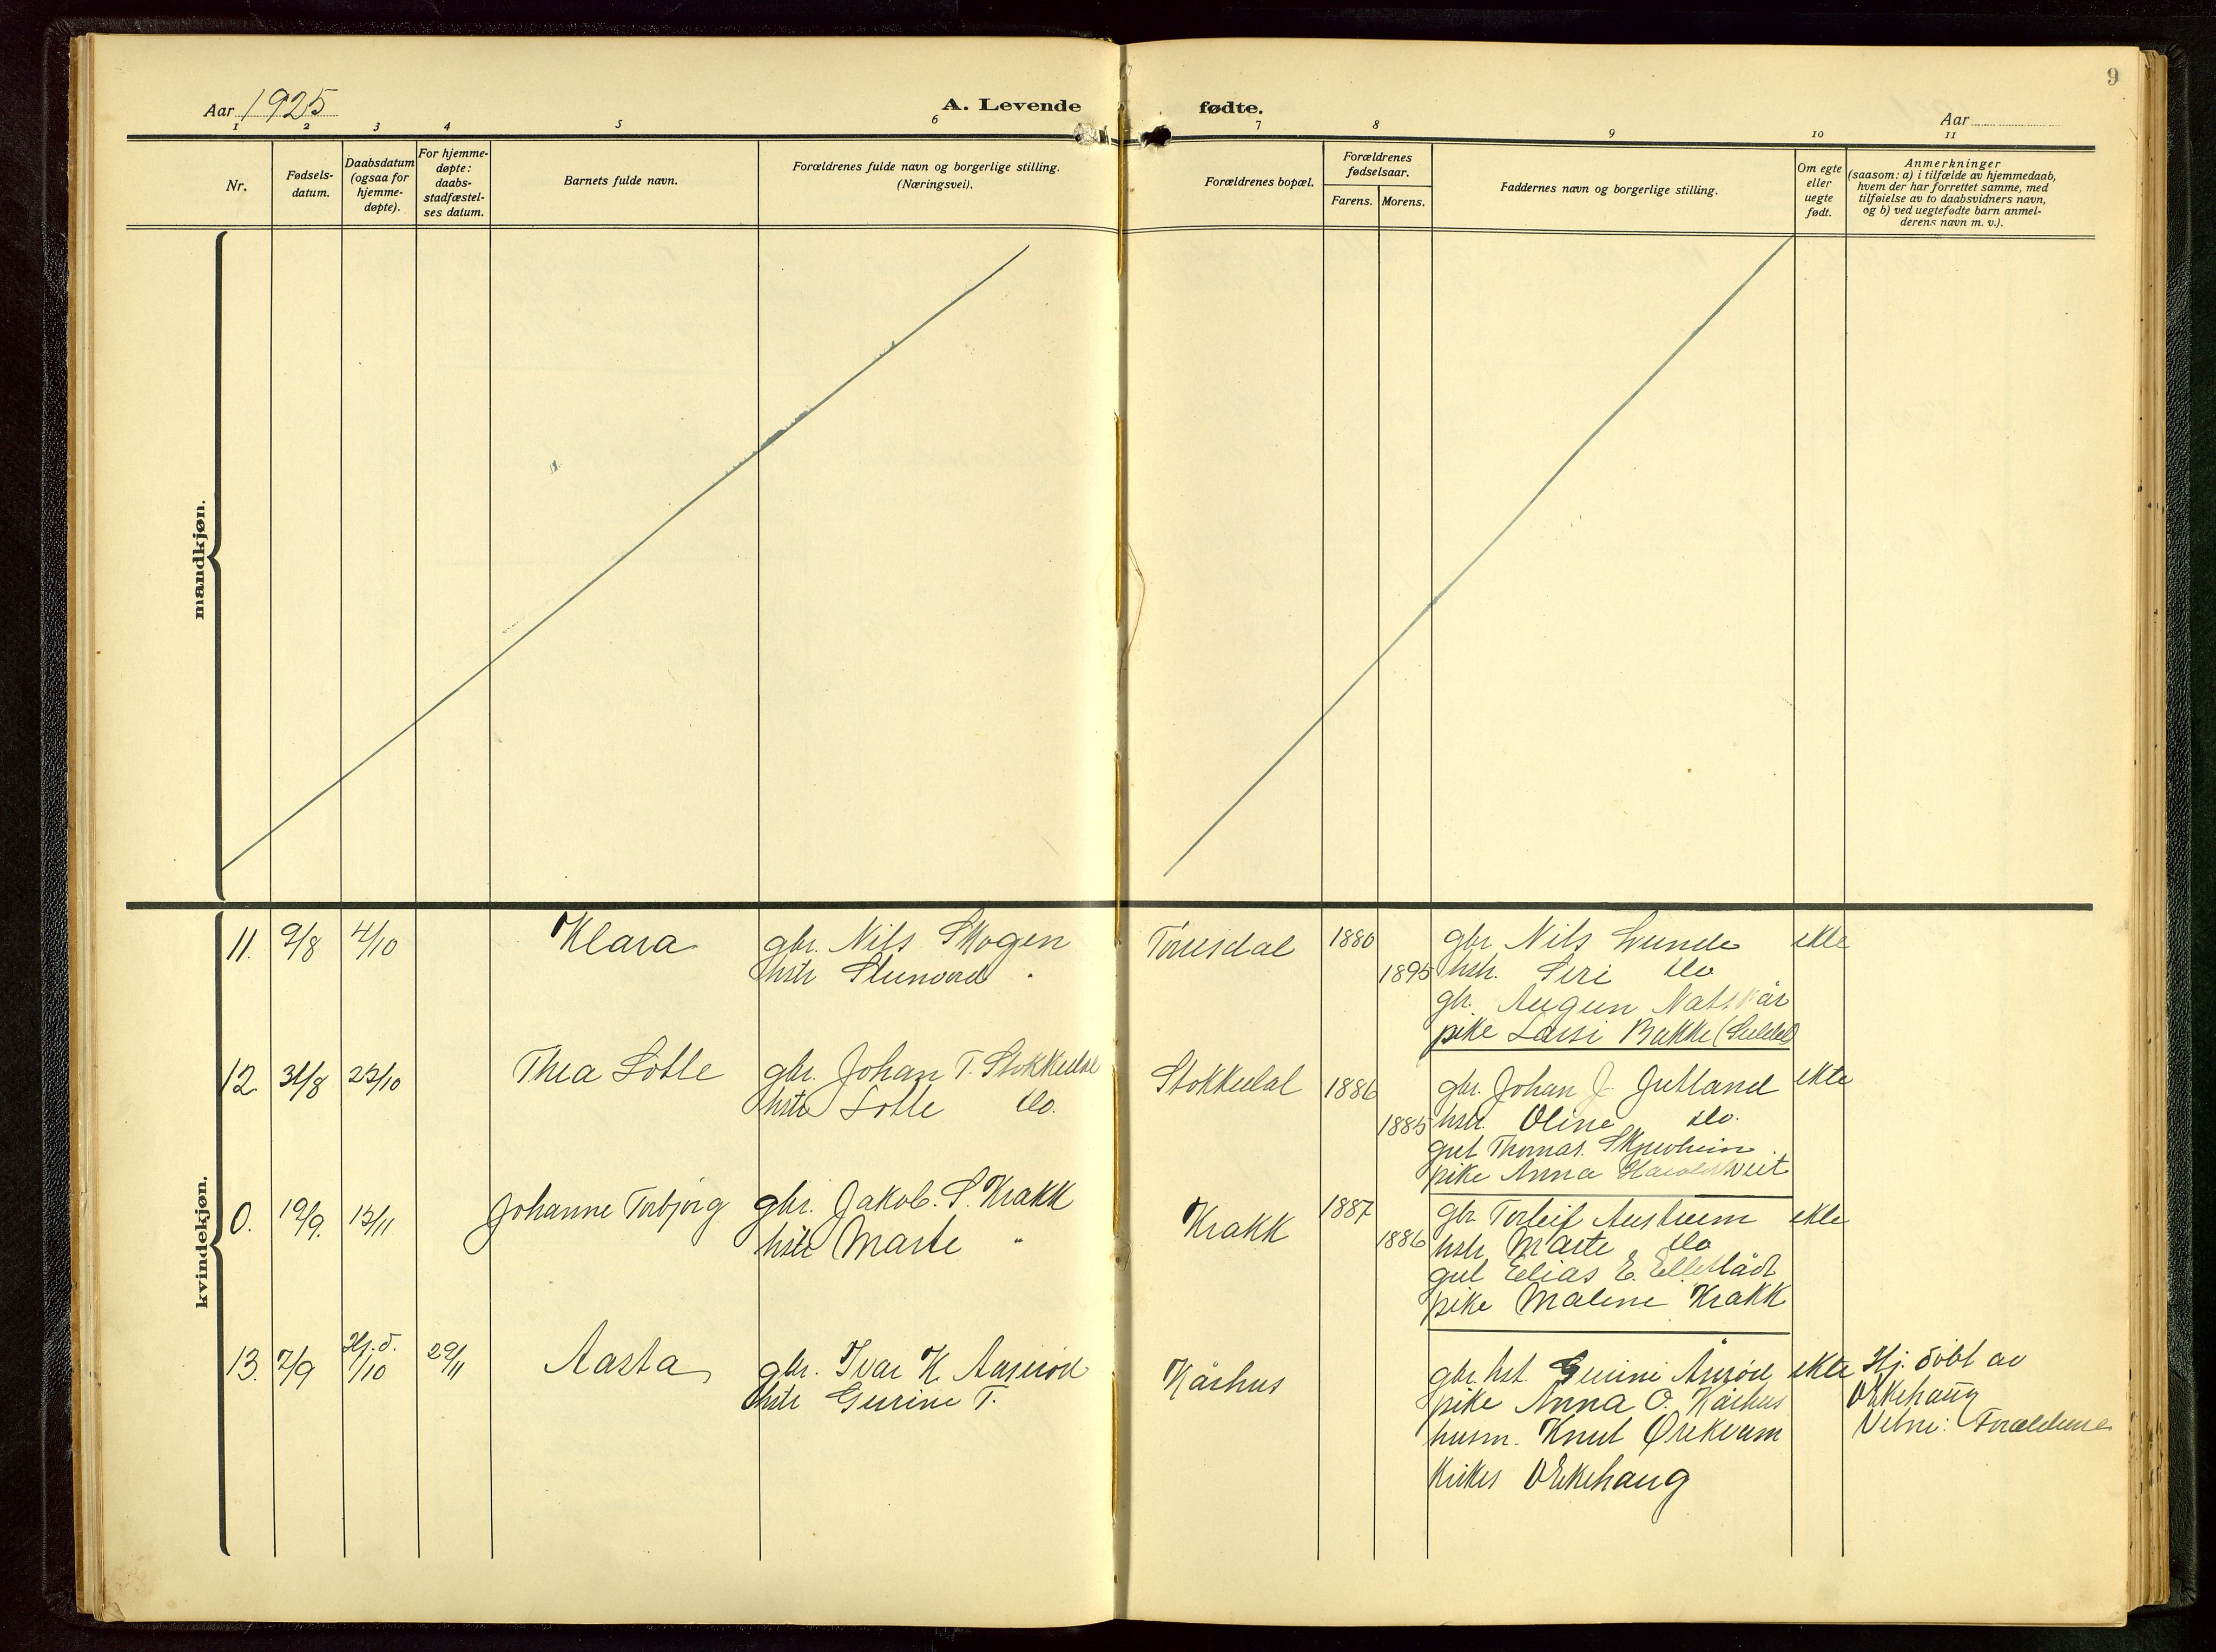 9
Aar 1925
A. Levende fødte.
Aar
1 2 3 4 5 6 7 8 9 10 11
Nr.
Fødsels-
datum.
Daabsdatum
(ogsaa for
hjemme-
døpte).
For hjemme-
døpte:
daabs-
stadfæstel-
ses datum.
Barnets fulde navn.
Forældrenes fulde navn og borgerlige stilling.
(Næringsvei).
Forældrenes bopæl.
Forældrenes
fødselsaar.
Farens. Morens.
Faddernes navn og borgerlige stilling.
Om egte
eller
uegte
født.
Anmerkninger
(saasom: a) i tilfælde av hjemmedaab,
hvem der har forrettet samme, med
tilføielse av to daabsvidners navn,
og b) ved uegtefødte barn anmel-
derens navn m. v.).
mandkjøn.
kvindekjøn.
11. 9/8 4/10 Klara gbr. Nils Skogen Tønesdal 1880 gbr Nils Lunde ekte
hstr 1895 hstr. Siri do
gbr. Augun
pike Bakke (Suldal)
12 31/8 23/10 Thea Lotte gbr. Johan T. Stokkedal Stokkedal 1886 gbr. Johan J. Jutland ekte
hstr Lotte do. 1885 hstr. Oline do.
gut Thomas
pike Anna
0. 19/9. 13/11 Johanne Torbjørg gbr. Jakob. S. Krakk Krakk 1887 gbr Torleif Austreim ekte
hstr Marte " 1886 hstr Marte do
gut Elias E.
pike Malene Krakk
13. 7/9 Hj. d. 1/10 29/11 Aasta gbr. Ivar K. Aaserød Kårhus gbr. hst. Gurine Åsrød ekte Hj. döbt av
hstr Gurine T. pike Anna O. Kårhus Ekkehaug
husm. Knut Ørekvam Vitne: Forældrene
Ekkehaug